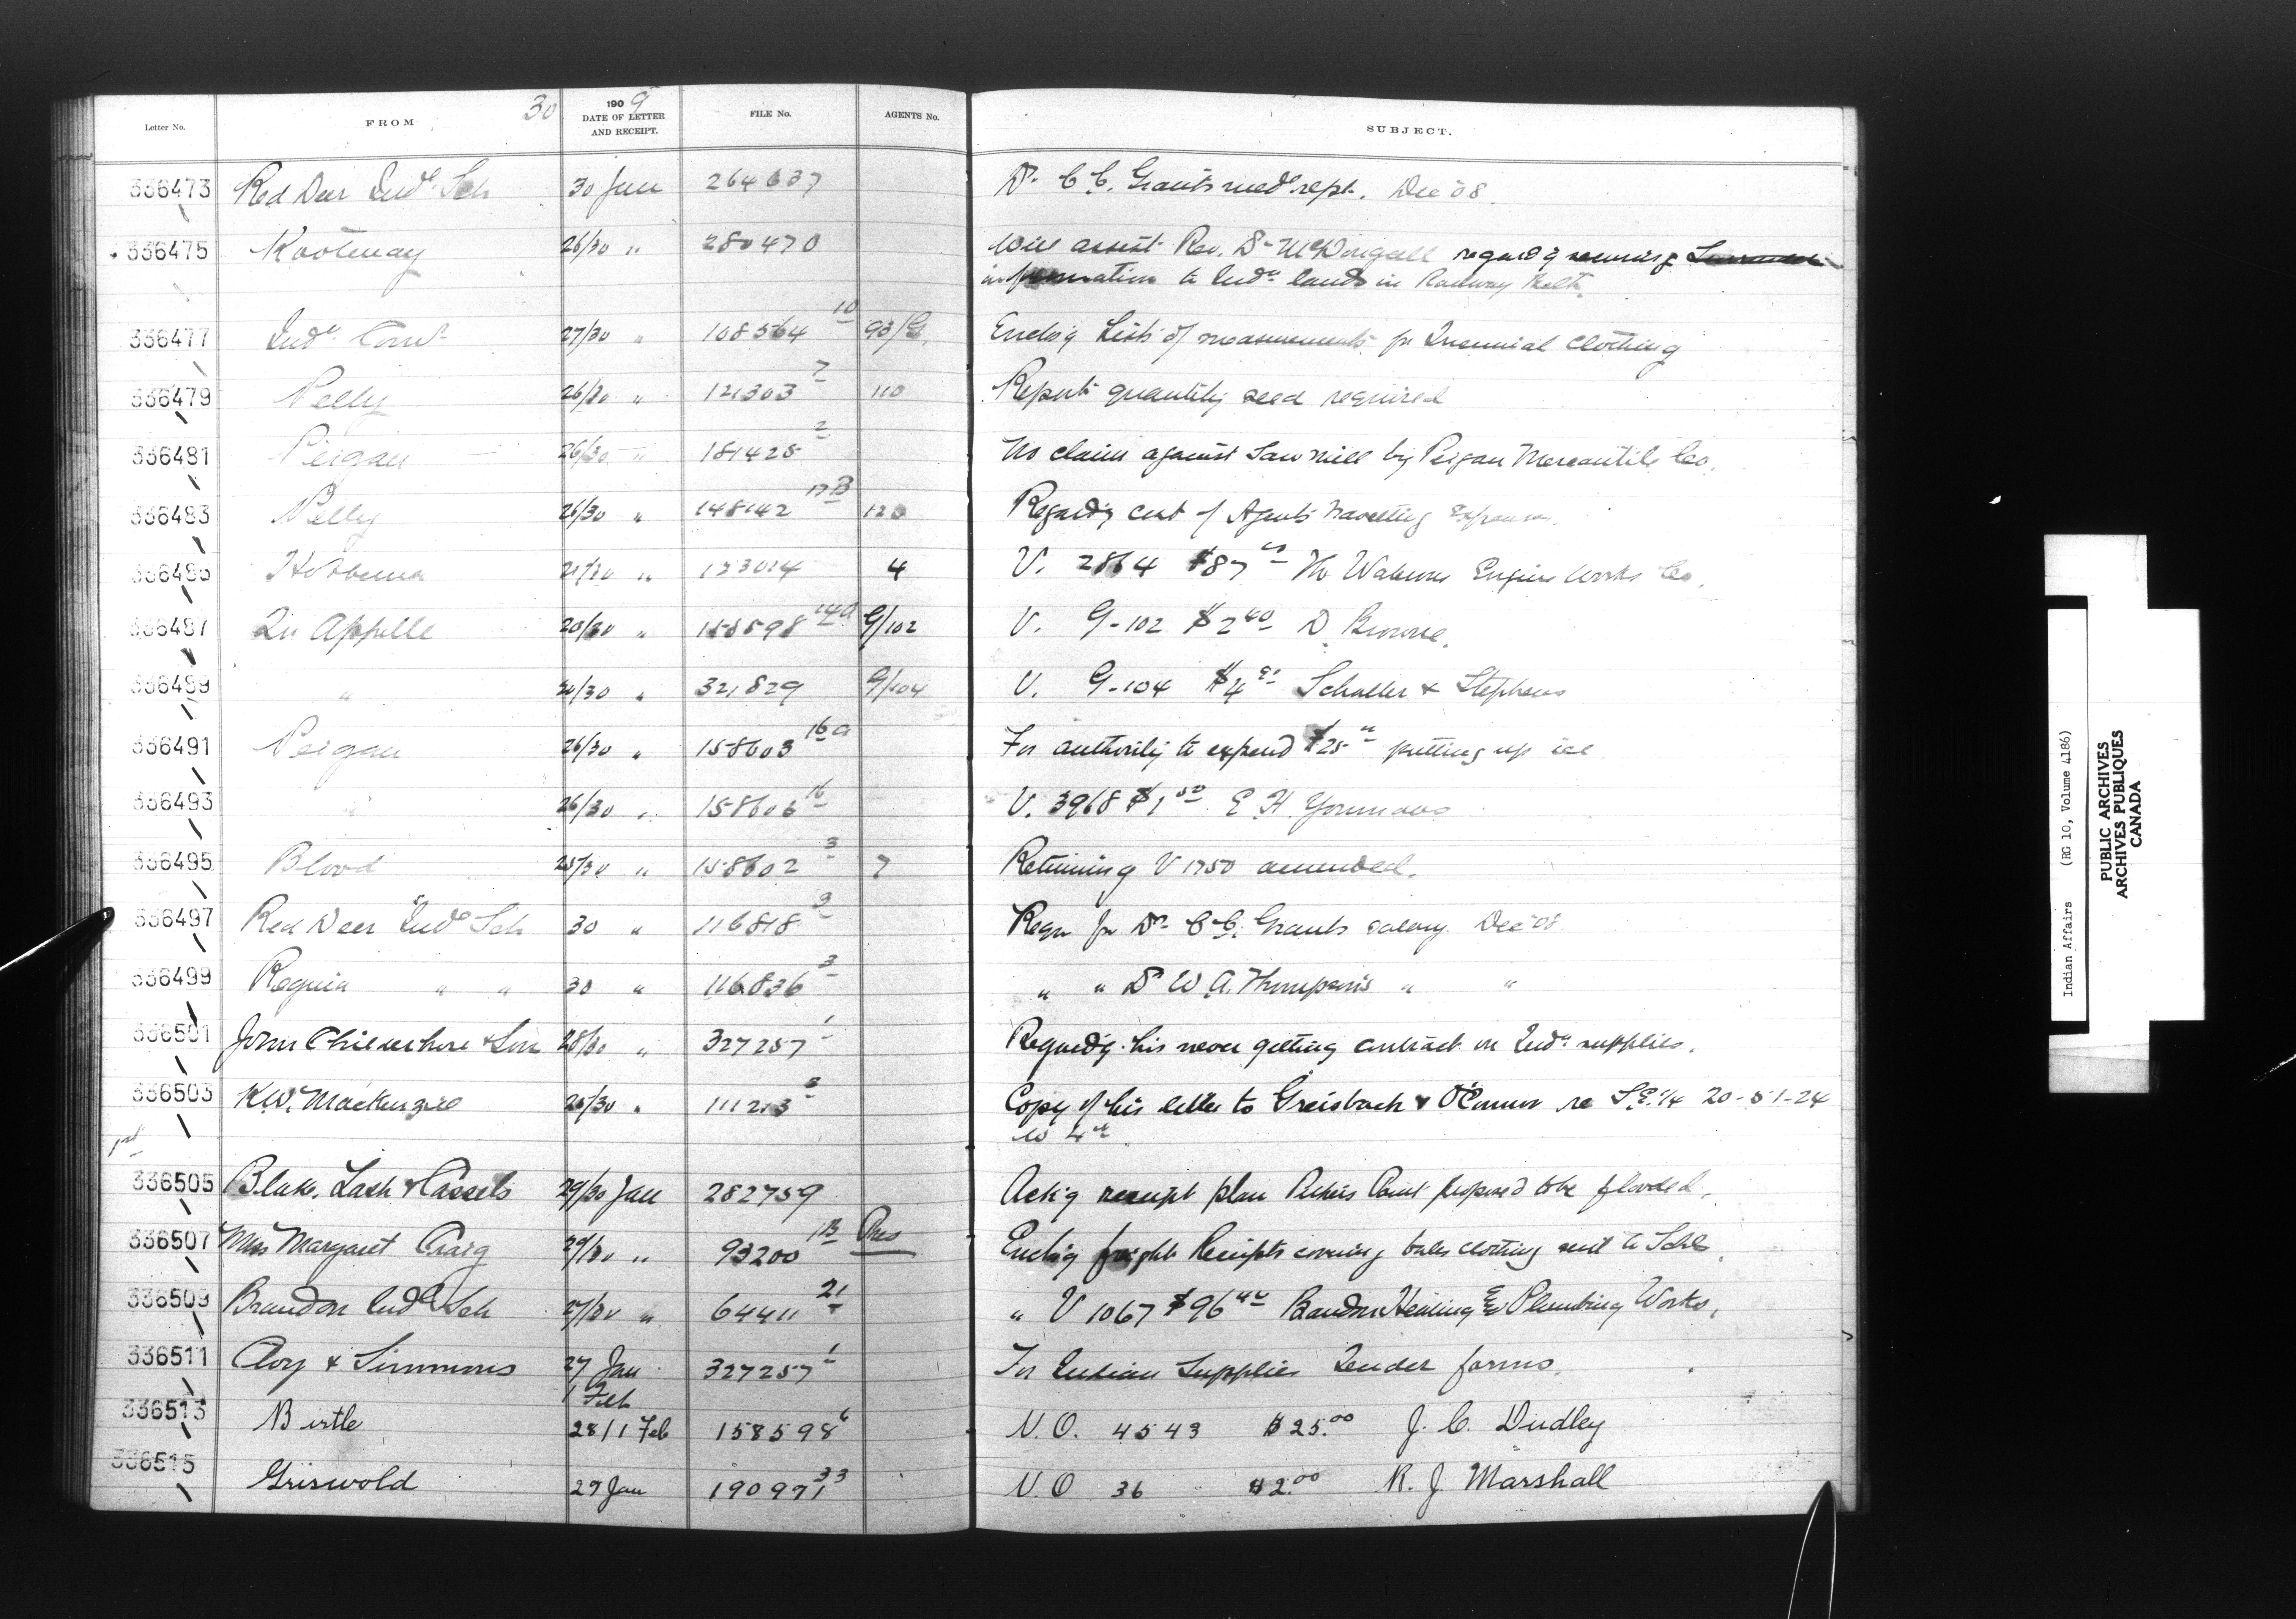 Letter No. FROM 30 1909 DATE OF LETTER AND RECEIPT. FILE No. AGENTS No. SUBJECT.
336473 Red Deer Indl. Sch 30 Jan 264637 Dr. C. C. Grants medl rept. Dec '08.
336475 Kootenay 26/30 " 280470 Will assist Rev. Dr McDougall regardg securing
information to Indn lands in Railway Belt.
336477 Indn Comr 27/30 " 108564 10 93/G. Enclos'g Lists of measurements for Triennial Clothing
336479 Pelly 26/30 " 121303 7 110 Reports quantity seed required
336481 Peigan 26/30 " 181425 2 No claim against Saw mill by Peigan Mercantile Co.
336483 Pelly 26/30 " 148142 17B 120 Regard'g cost of Agents travelling Expenses.
336485 Hobbema 21/30 " 123014 4 V. 2864 $87 The Waterous Engine Works Co.
336487 Qu Appelle 20/30 " 158598 14a G/102 V. G-102 $2 40 D. Browne.
336489 " " 321829 G/104 V. G-104 $4 Schaller & Stephens
336491 Peigan 26/30 " 158603 16a For authority to expend $25 putting up ice
336493 " 26/30 " 158606 16 V. 3968 $1 50 E H Youmans
336495 Blood 25/30 " 158602 3 7 Returning V 1750 amended.
336497 Red Deer Indl Sch 30 " 116818 3 Reqn for Dr C. C. Grants salary Dec '08
336499 Regina " " 30 " 116836 3 " " Dr W. A. Thompson's " "
336501 John & Son 28/30 " 327257 1 Regard'g his never getting contract on Indn supplies.
336503 K.W. Mackenzie 26/30 " 111213 3 Copy of his letter to Greisbach & O'Connor re S.E. 1/4 20-51-24
W 4th
336505 Blake, Lash & Cassels 29/30 Jan 282759 Ack'g receipt plan Point proposed to be flooded.
336507 Mrs Margaret Craig 29/30 " 93200 1B Pres Enclo'g freight Receipts covering bales clothing sent to Schls.
336509 Brandon Indl Sch 27/30 " 64411 21 " V 1067 $96 40 Brandon Heating & Plumbing Works.
336511 Cloy & Simmons 27 Jan 327257 1 For Indian Supplies Tender forms.
1 Feb
336513 Birtle 28/1 Feb 158598 6 V.O. 4543 $25.00 J. C. Dudley
336515 Griswold 29 Jan 190971 33 V.O 36 $2.00 R. J. Marshall
Indian Affairs (RG 10, Volume 4186)
PUBLIC ARCHIVES
ARCHIVES PUBLIQUES
CANADA